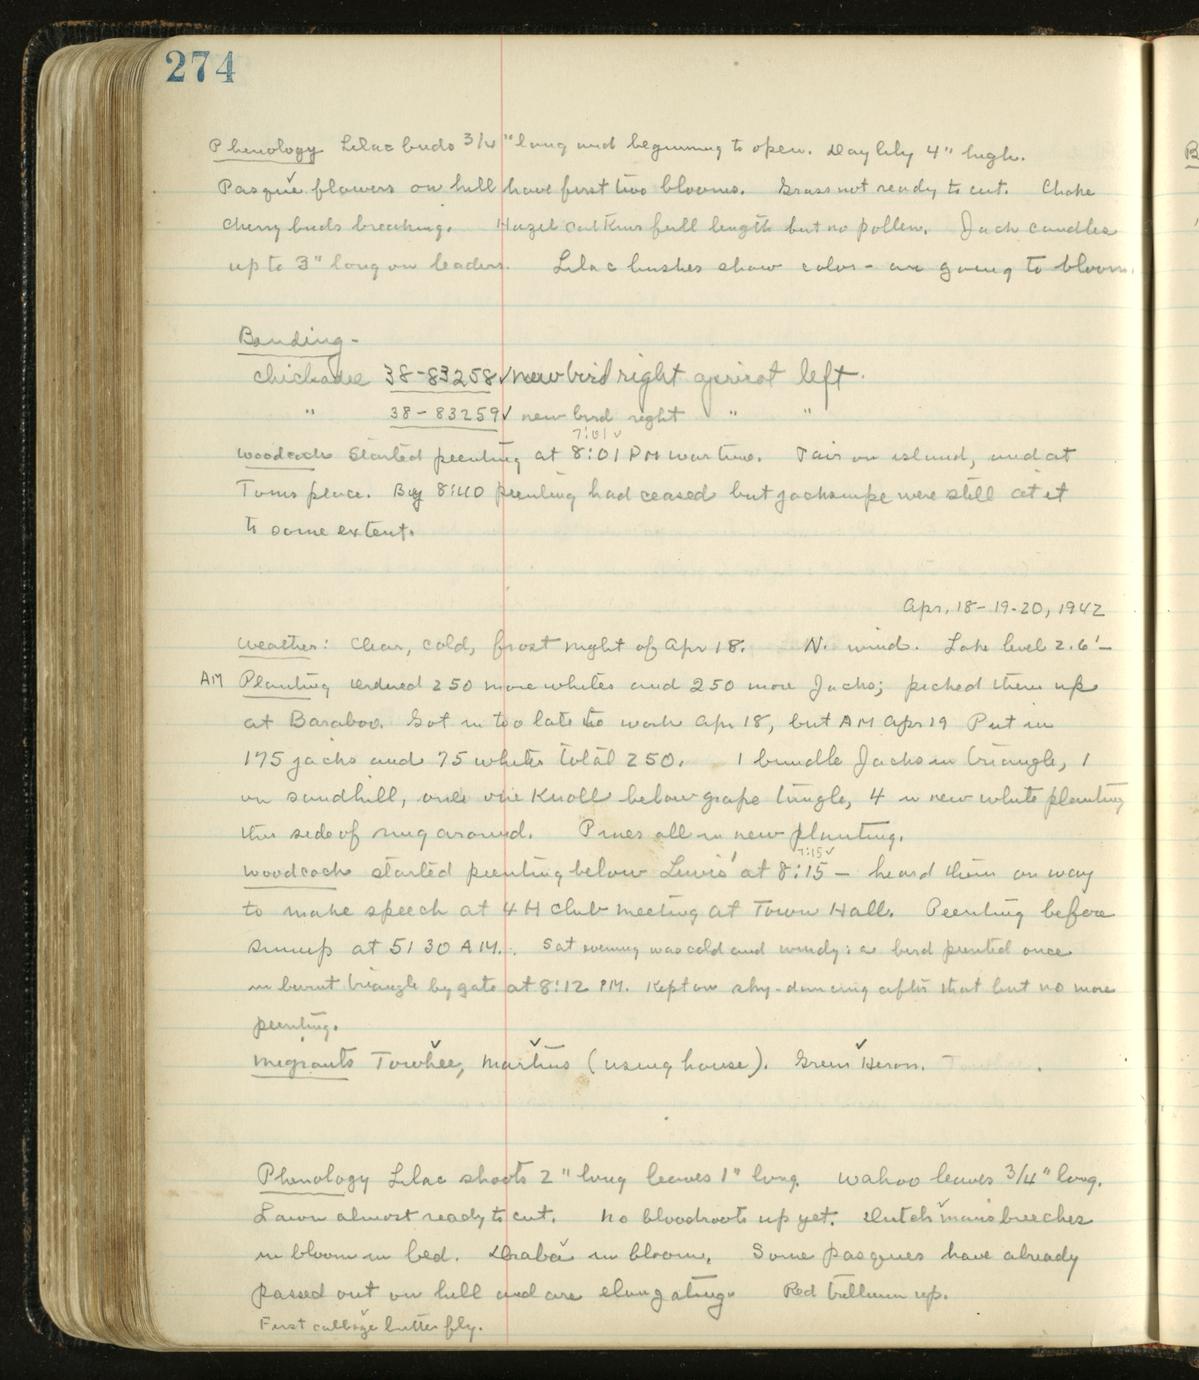 274
Phenology Lilac buds 3/4" long and beginning to open. Daylily 4" high.
Pasque flowers on hill have first two blooms. Grass not ready to cut. Choke
cherry buds breaking. Hazel catkins full length but no pollen. Jack candles
up to 3" long on leaders. Lilac bushes show color - are going to bloom.
Banding -
chickadee 38-83258 ✓ new bird right apricot left.
" 38-83259 ✓ new bird right " "
7:01 ✓
woodcock started peenting at 8:01 PM war time. Pair on island, and at
Toms place. By 8:40 peenting had ceased but jacksnipe were still at it
to some extent.
Apr. 18-19-20, 1942
Weather: Clear, cold, frost night of Apr 18. N. wind. Lake level 2.6' -
AM Planting Ordered 250 more whites and 250 more Jacks; picked them up
at Baraboo. Got in too late to work Apr 18, but AM Apr 19 Put in
175 jacks and 75 whites total 250. 1 bundle Jacks in triangle, 1
on sandhill, one on knoll below grape tangle, 4 in new white planting
this side of around. Pines all in new planting.
7:15 ✓
woodcock started peenting below Lewis' at 8:15 - heard them on way
to make speech at 4H club meeting at Town Hall. Peenting before
sunup at 5:30 AM. Sat evening was cold and windy: a bird peented once
in burnt triangle by gate at 8:12 PM. Kept on sky-dancing after that but no more
peenting.
Migrants Towhee, Martins (using house). Green Heron.
Phenology Lilac shoots 2" long leaves 1" long. Wahoo leaves 3/4" long.
Lawn almost ready to cut. No bloodroots up yet. Dutchmans breeches
in bloom in bed. Draba in bloom. Some pasques have already
passed out on hill and are elongating. Red trillium up.
First cabbage butterfly.